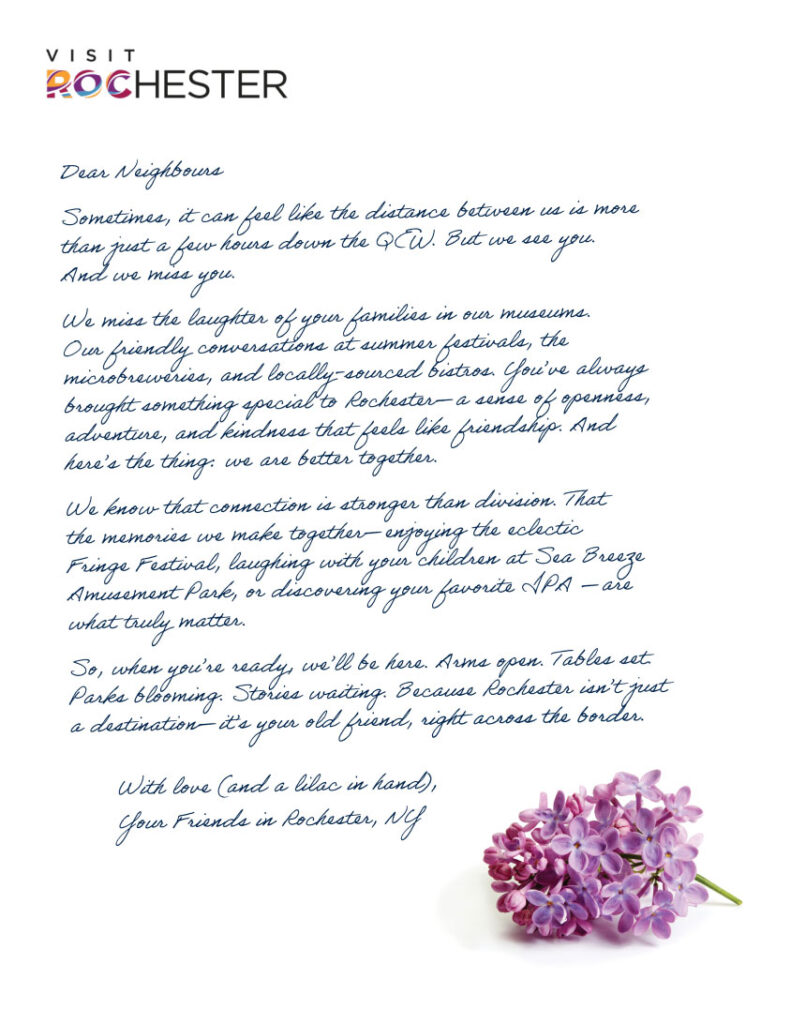 VISIT
ROCHESTER
Dear Neighbours
Sometimes, it can feel like the distance between us is more
than just a few hours down the QEW. But we see you.
And we miss you.
We miss the laughter of your families in our museums.
Our friendly conversations at summer festivals, the
microbreweries, and locally-sourced bistros. You've always
brought something special to Rochester—a sense of openness,
adventure, and kindness that feels like friendship. And
here's the thing: we are better together.
We know that connection is stronger than division. That
the memories we make together—enjoying the eclectic
Fringe Festival, laughing with your children at Sea Breeze
Amusement Park, or discovering your favorite IPA — are
what truly matter.
So, when you're ready, we'll be here. Arms open. Tables set.
Parks blooming. Stories waiting. Because Rochester isn't just
a destination—it's your old friend, right across the border.
With love (and a lilac in hand),
Your Friends in Rochester, NY